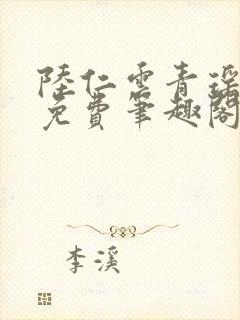 陸仁雲青瑶
免費筆趣閣
李溪